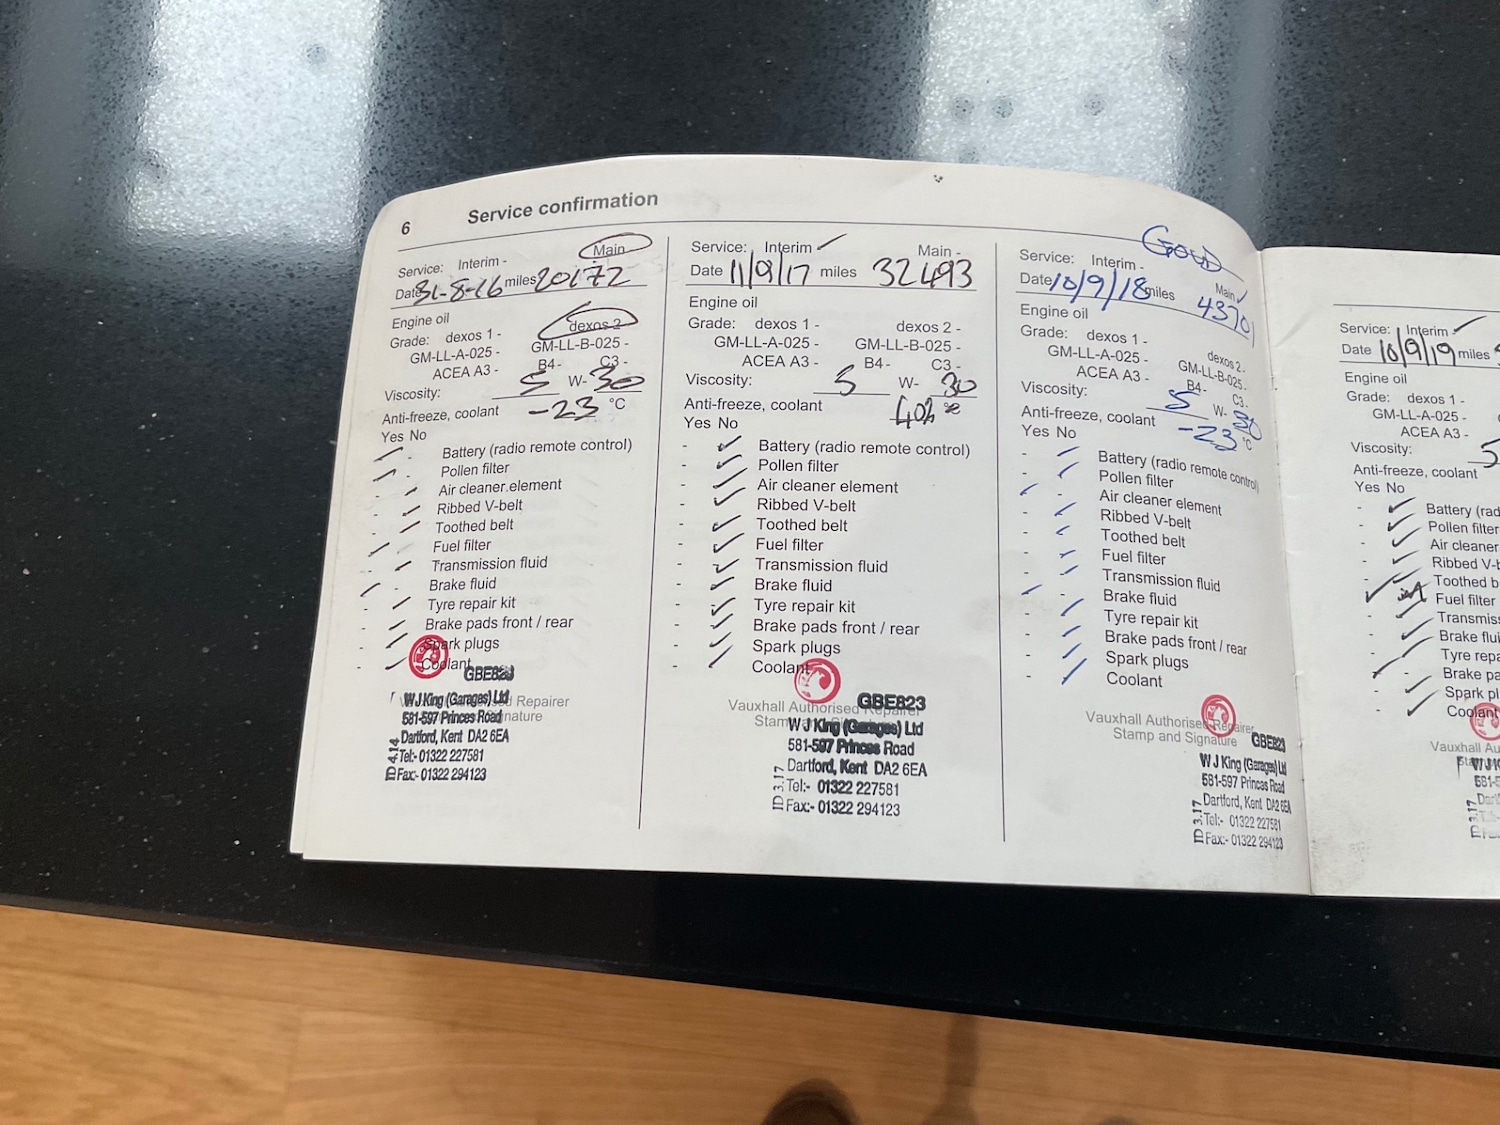 6 Service confirmation
Service: Interim - Main -
Date 31-8-16 miles 20172
Engine oil
Grade: dexos 1 - dexos 2
GM-LL-A-025 - GM-LL-B-025 -
ACEA A3 - B4- C3 -
Viscosity: 5 W- 30
Anti-freeze, coolant -23 °C
Yes No
Battery (radio remote control)
Pollen filter
Air cleaner element
Ribbed V-belt
Toothed belt
Fuel filter
Transmission fluid
Brake fluid
Tyre repair kit
Brake pads front / rear
Spark plugs
Coolant
GBE823
Repairer
Signature
W J King (Garages) Ltd
581-597 Princes Road
Dartford, Kent DA2 6EA
Tel:- 01322 227581
Fax:- 01322 294123
ID 4.14
Service: Interim ✓ Main -
Date 11/9/17 miles 32493
Engine oil
Grade: dexos 1 - dexos 2 -
GM-LL-A-025 - GM-LL-B-025 -
ACEA A3 - B4- C3 -
Viscosity: 5 W- 30
Anti-freeze, coolant 40%
Yes No
Battery (radio remote control)
Pollen filter
Air cleaner element
Ribbed V-belt
Toothed belt
Fuel filter
Transmission fluid
Brake fluid
Tyre repair kit
Brake pads front / rear
Spark plugs
Coolant
GBE823
Vauxhall Authorised Repairer
W J King (Garages) Ltd
581-597 Princes Road
Dartford, Kent DA2 6EA
Tel:- 01322 227581
Fax:- 01322 294123
ID 3.17
GOLD
Service: Interim - Main ✓
Date 10/9/18 miles 43701
Engine oil
Grade: dexos 1 - dexos 2 -
GM-LL-A-025 - GM-LL-B-025 -
ACEA A3 - B4- C3 -
Viscosity: 5 W- 30
Anti-freeze, coolant -23 °C
Yes No
Battery (radio remote control)
Pollen filter
Air cleaner element
Ribbed V-belt
Toothed belt
Fuel filter
Transmission fluid
Brake fluid
Tyre repair kit
Brake pads front / rear
Spark plugs
Coolant
Vauxhall Authorised Repairer
Stamp and Signature
GBE823
W J King (Garages) Ltd
581-597 Princes Road
Dartford, Kent DA2 6EA
Tel:- 01322 227581
Fax:- 01322 294123
ID 3.17
Service: Interim ✓
Date 10/9/19 miles
Engine oil
Grade: dexos 1 -
GM-LL-A-025 -
ACEA A3 -
Viscosity: 5
Anti-freeze, coolant
Yes No
Battery (rad
Pollen filter
Air cleaner
Ribbed V-b
Toothed b
Fuel filter
Transmiss
Brake flui
Tyre repa
Brake pa
Spark pl
Coolant
Vauxhall Au
ID 3.17